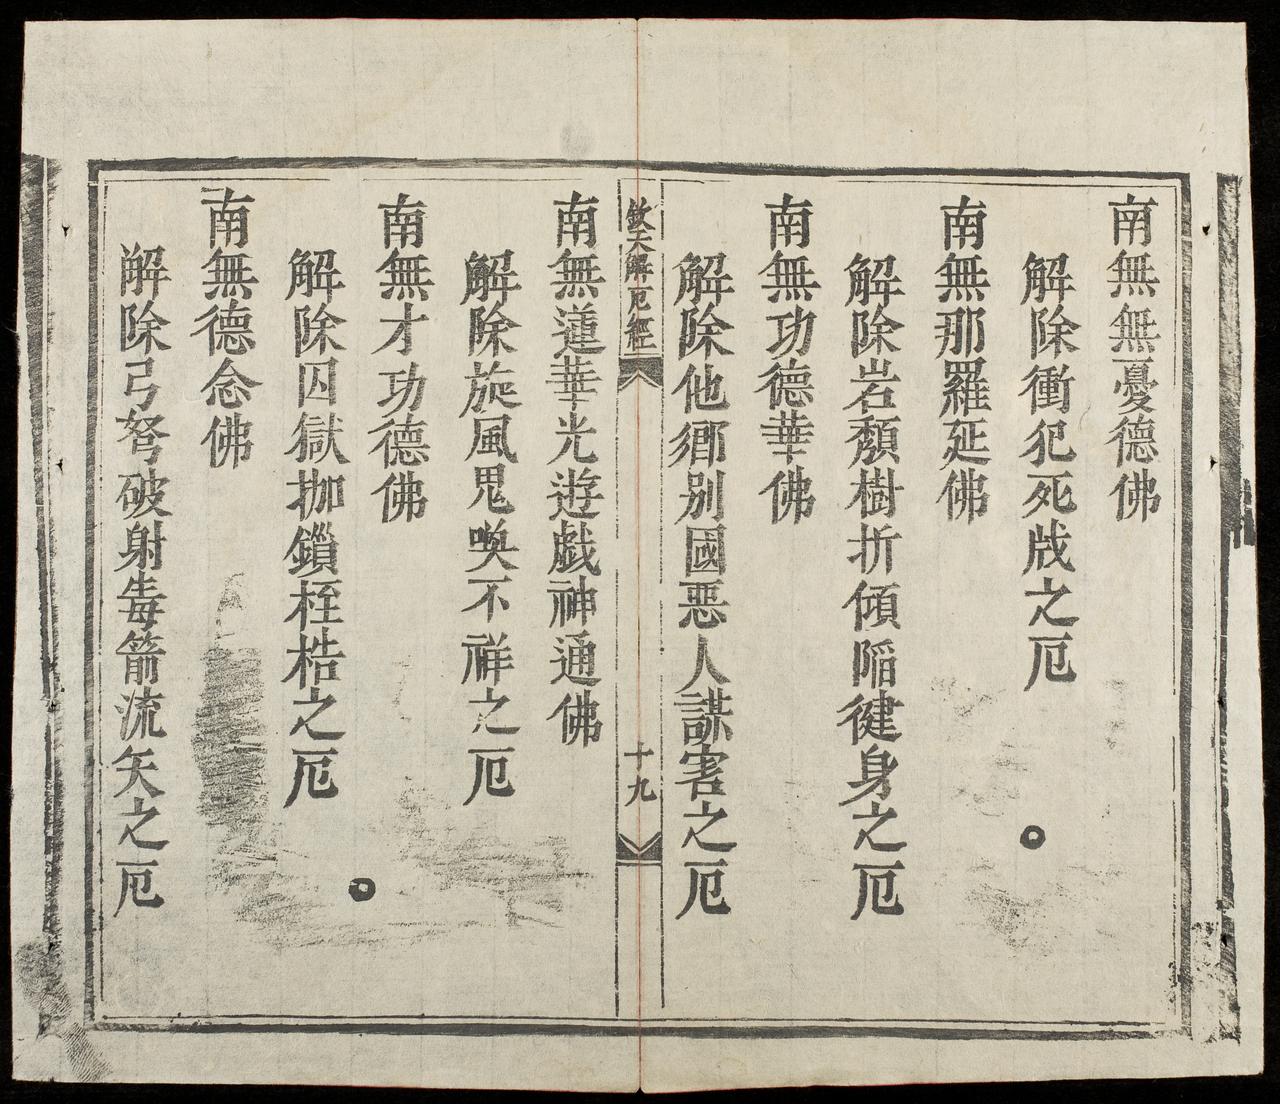 南無無憂德佛
解除衝犯死戕之厄
南無那羅延佛
解除岩頽樹折傾陷健身之厄
南無功德華佛
解除他鄉別國惡人謀害之厄
欽天解厄經
十九
南無蓮華光遊戲神通佛
解除旋風鬼喚不祥之厄
南無才功德佛
解除囚獄枷鎖桎梏之厄
南無德念佛
解除弓弩破射毒箭流矢之厄